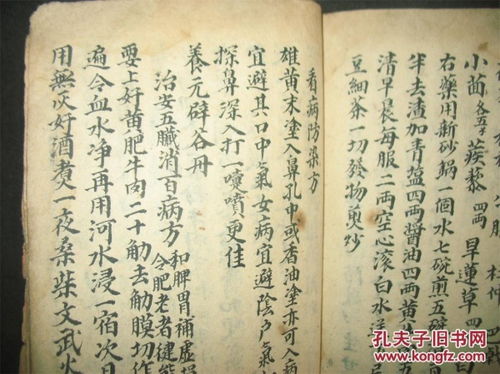 小茴各五 蒺藜四両 旱蓮草四
右藥用新砂鍋一個水七碗煎五碗
半去渣加青塩四両醬油四両黄
清早晨每服二両空心滾白水
豆細茶一切發物煎炒
看病防染方
雄黄末塗入鼻孔中或香油塗亦可入病
宜避其口中氣女病宜避陰户氣
探鼻深入打一嚏噴更佳
養元辟谷丹
治安五臟消百病方
和脾胃補虛損
令肥老者健能
要上好黄肥牛肉二十觔去觔膜切作
遍令血水净再用河水浸一宿次日
用無灰好酒煮一夜桑柴文武火
孔夫子旧书网
www.kongfz.com